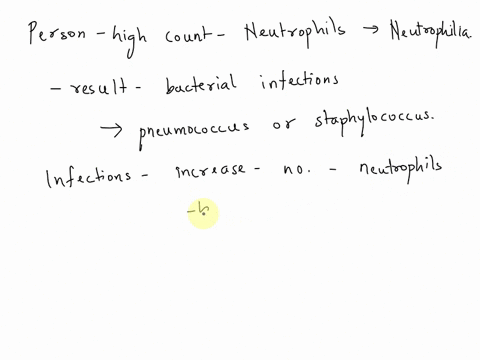 Person - high count - Neutrophils → Neutrophilia
- result - bacterial infections
→ pneumococcus or staphylococcus.
Infections - increase - no. - neutrophils